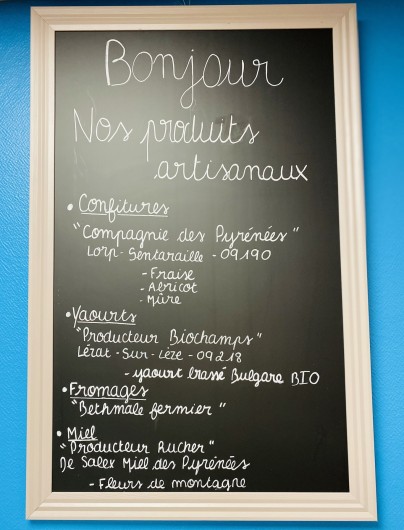 Bonjour
Nos produits
artisanaux
• Confitures
"Compagnie des Pyrénées"
Lorp-Sentaraille - 09190
- Fraise
- Abricot
- Mûre
• Yaourts
"Producteur Biochamps"
Lérat-Sur-Lèze - 09218
- yaourt brassé Bulgare BIO
• Fromages
"Bethmale fermier"
• Miel
"Producteur Rucher"
De Salex Miel des Pyrénées
- Fleurs de montagne